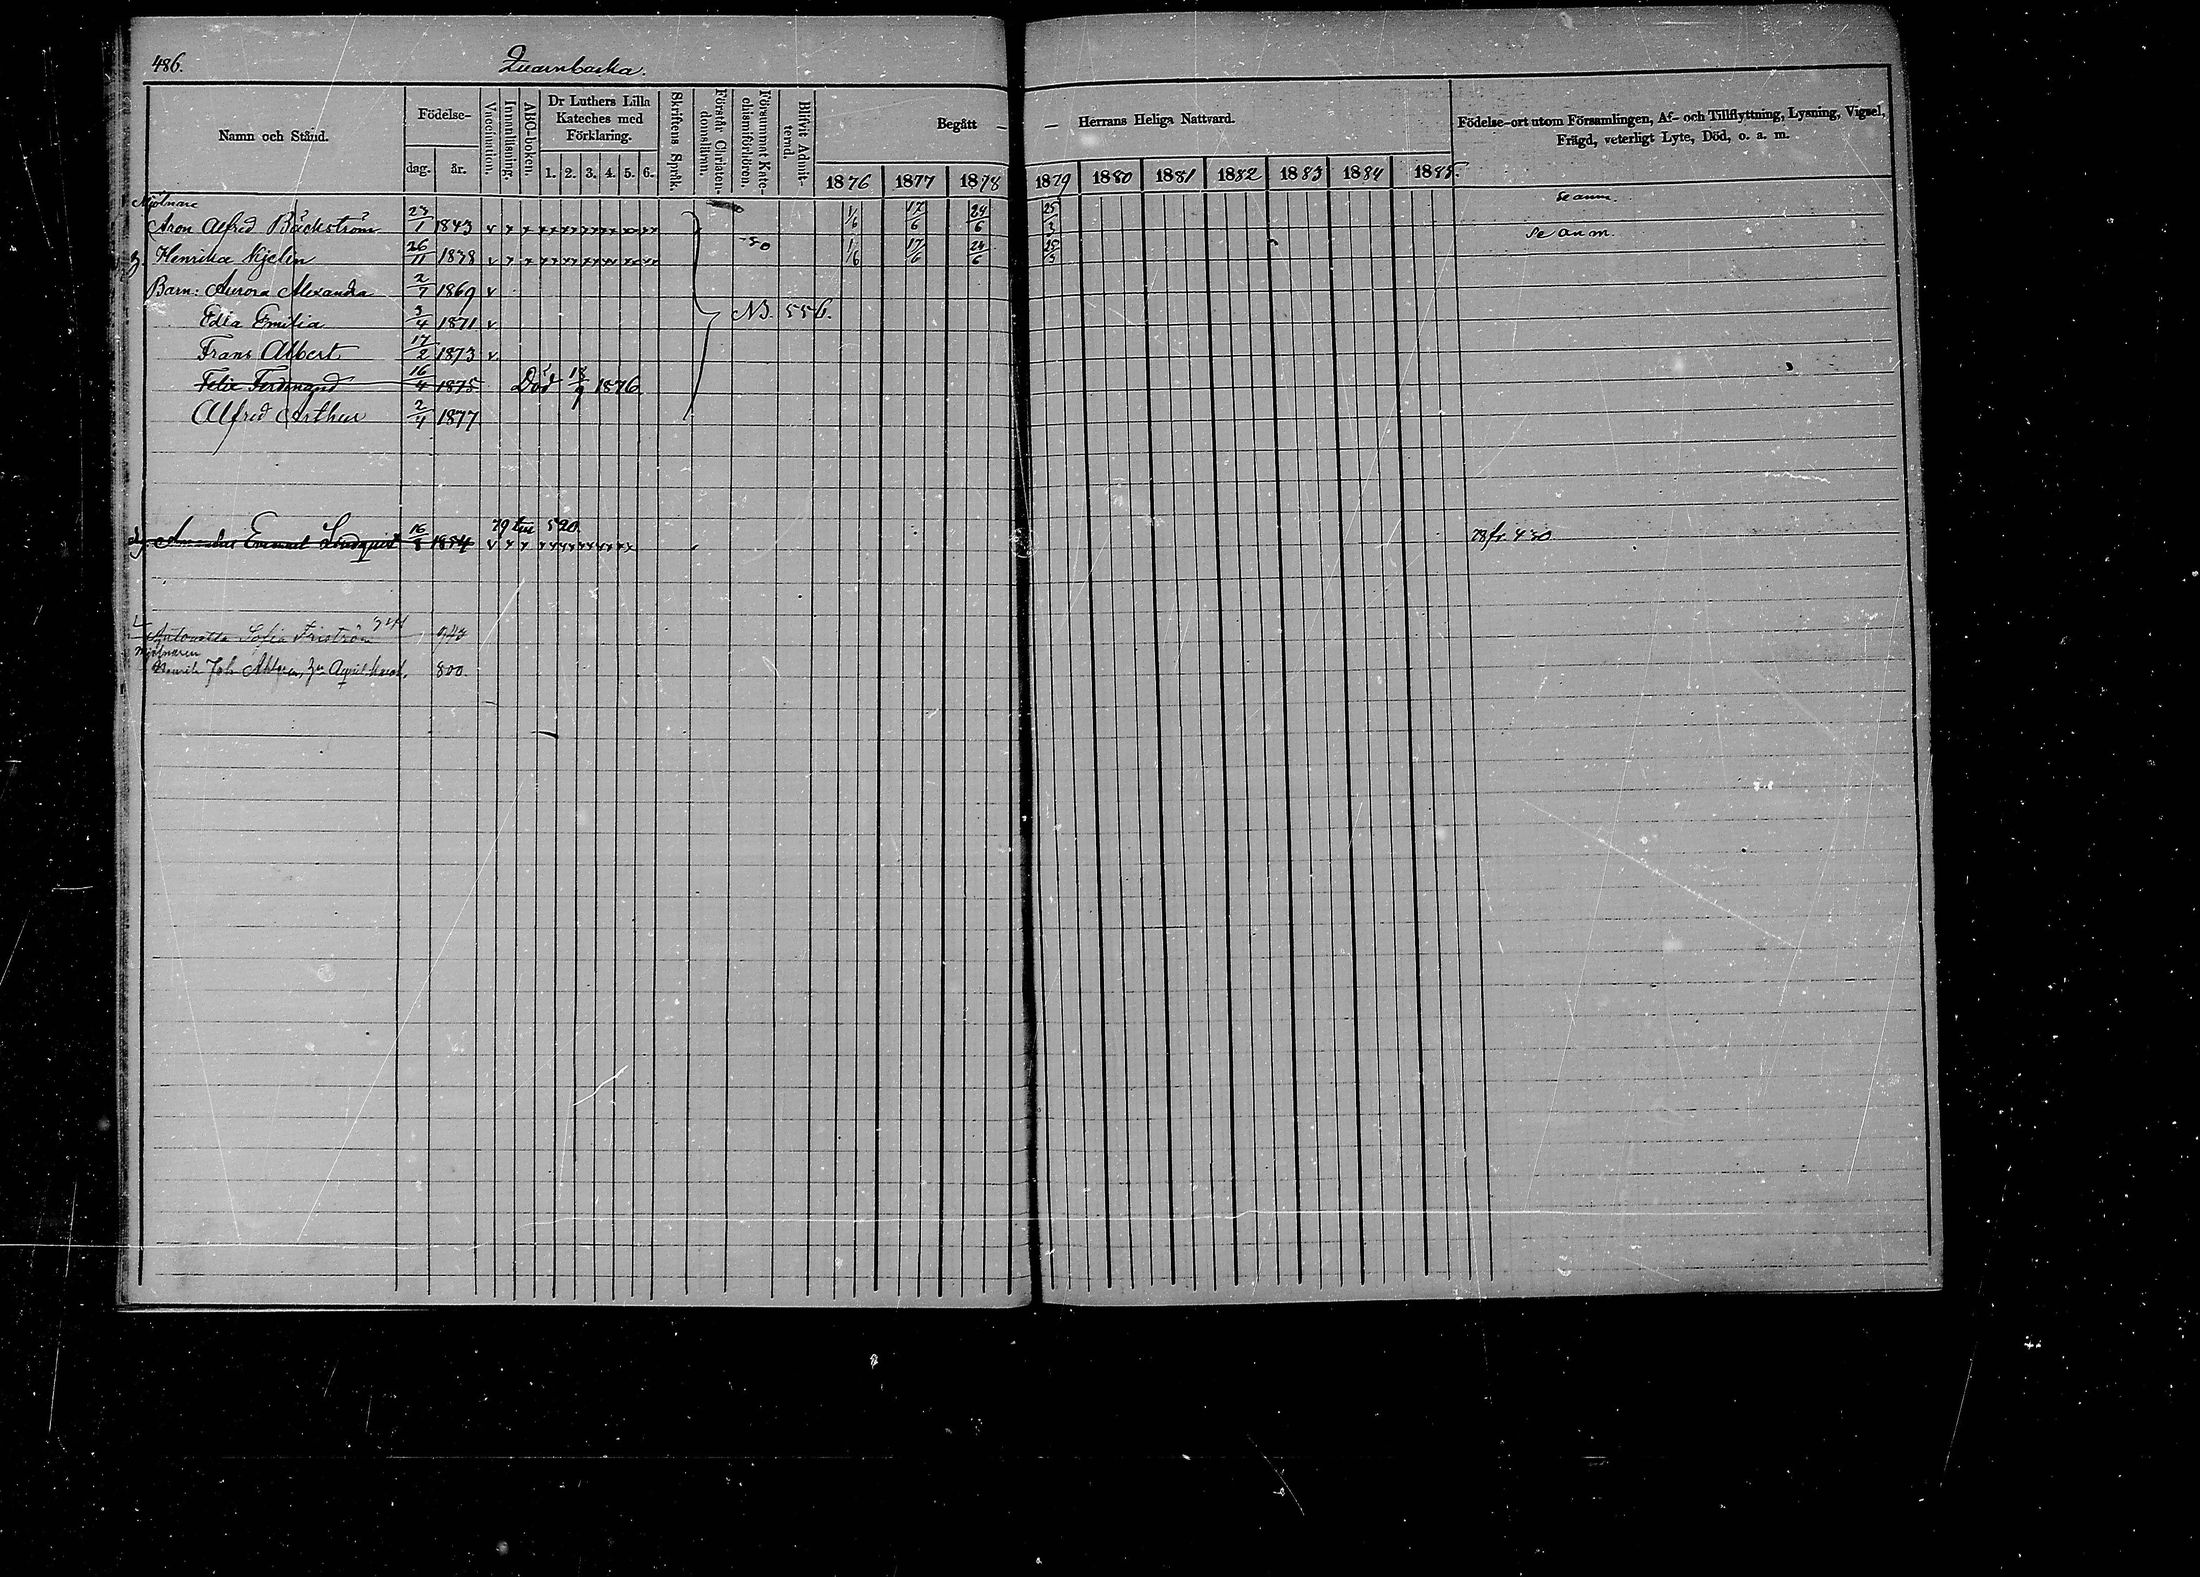 486.
Quarnbacka.
Namn och Stånd.
Födelse-
dag. år.
Vaccination.
Innanläsning.
ABC-boken.
Dr Luthers Lilla Kateches med Förklaring.
1. 2. 3. 4. 5. 6.
Skriftens Språk.
Förstår Christendomsläran.
Försummat Katechismiförhören.
Blifvit Admitterad.
Begått — — Herrans Heliga Nattvard.
1876 1877 1878 1879 1880 1881 1882 1883 1884 1885.
Födelse-ort utom Församlingen, Af- och Tillflyttning, Lysning, Vigsel, Frägd, veterligt Lyte, Död, o. a. m.
Mjölnare se anm.
Aron Alfred Bäckström 23/1 1843 v 1/6 17/6 24/6 25/3 se anm.
h. Henrika Kjelin 26/11 1838 v 1/6 17/6 24/6 25/3
Barn: Aurora Alexandra 2/7 1869 v
Edla Emilia 3/4 1871 v N3. 556.
Frans Albert 17/2 1873 v
Felix Ferdinand 16/4 1875 Död 18/9 1876
Alfred Arthur 2/4 1877
79 till 520
Emanuel Lindquist 16/8 1854 v 78 fr. 430
Sofia Friström 943
Mjölnaren
Henrik Joh 800.